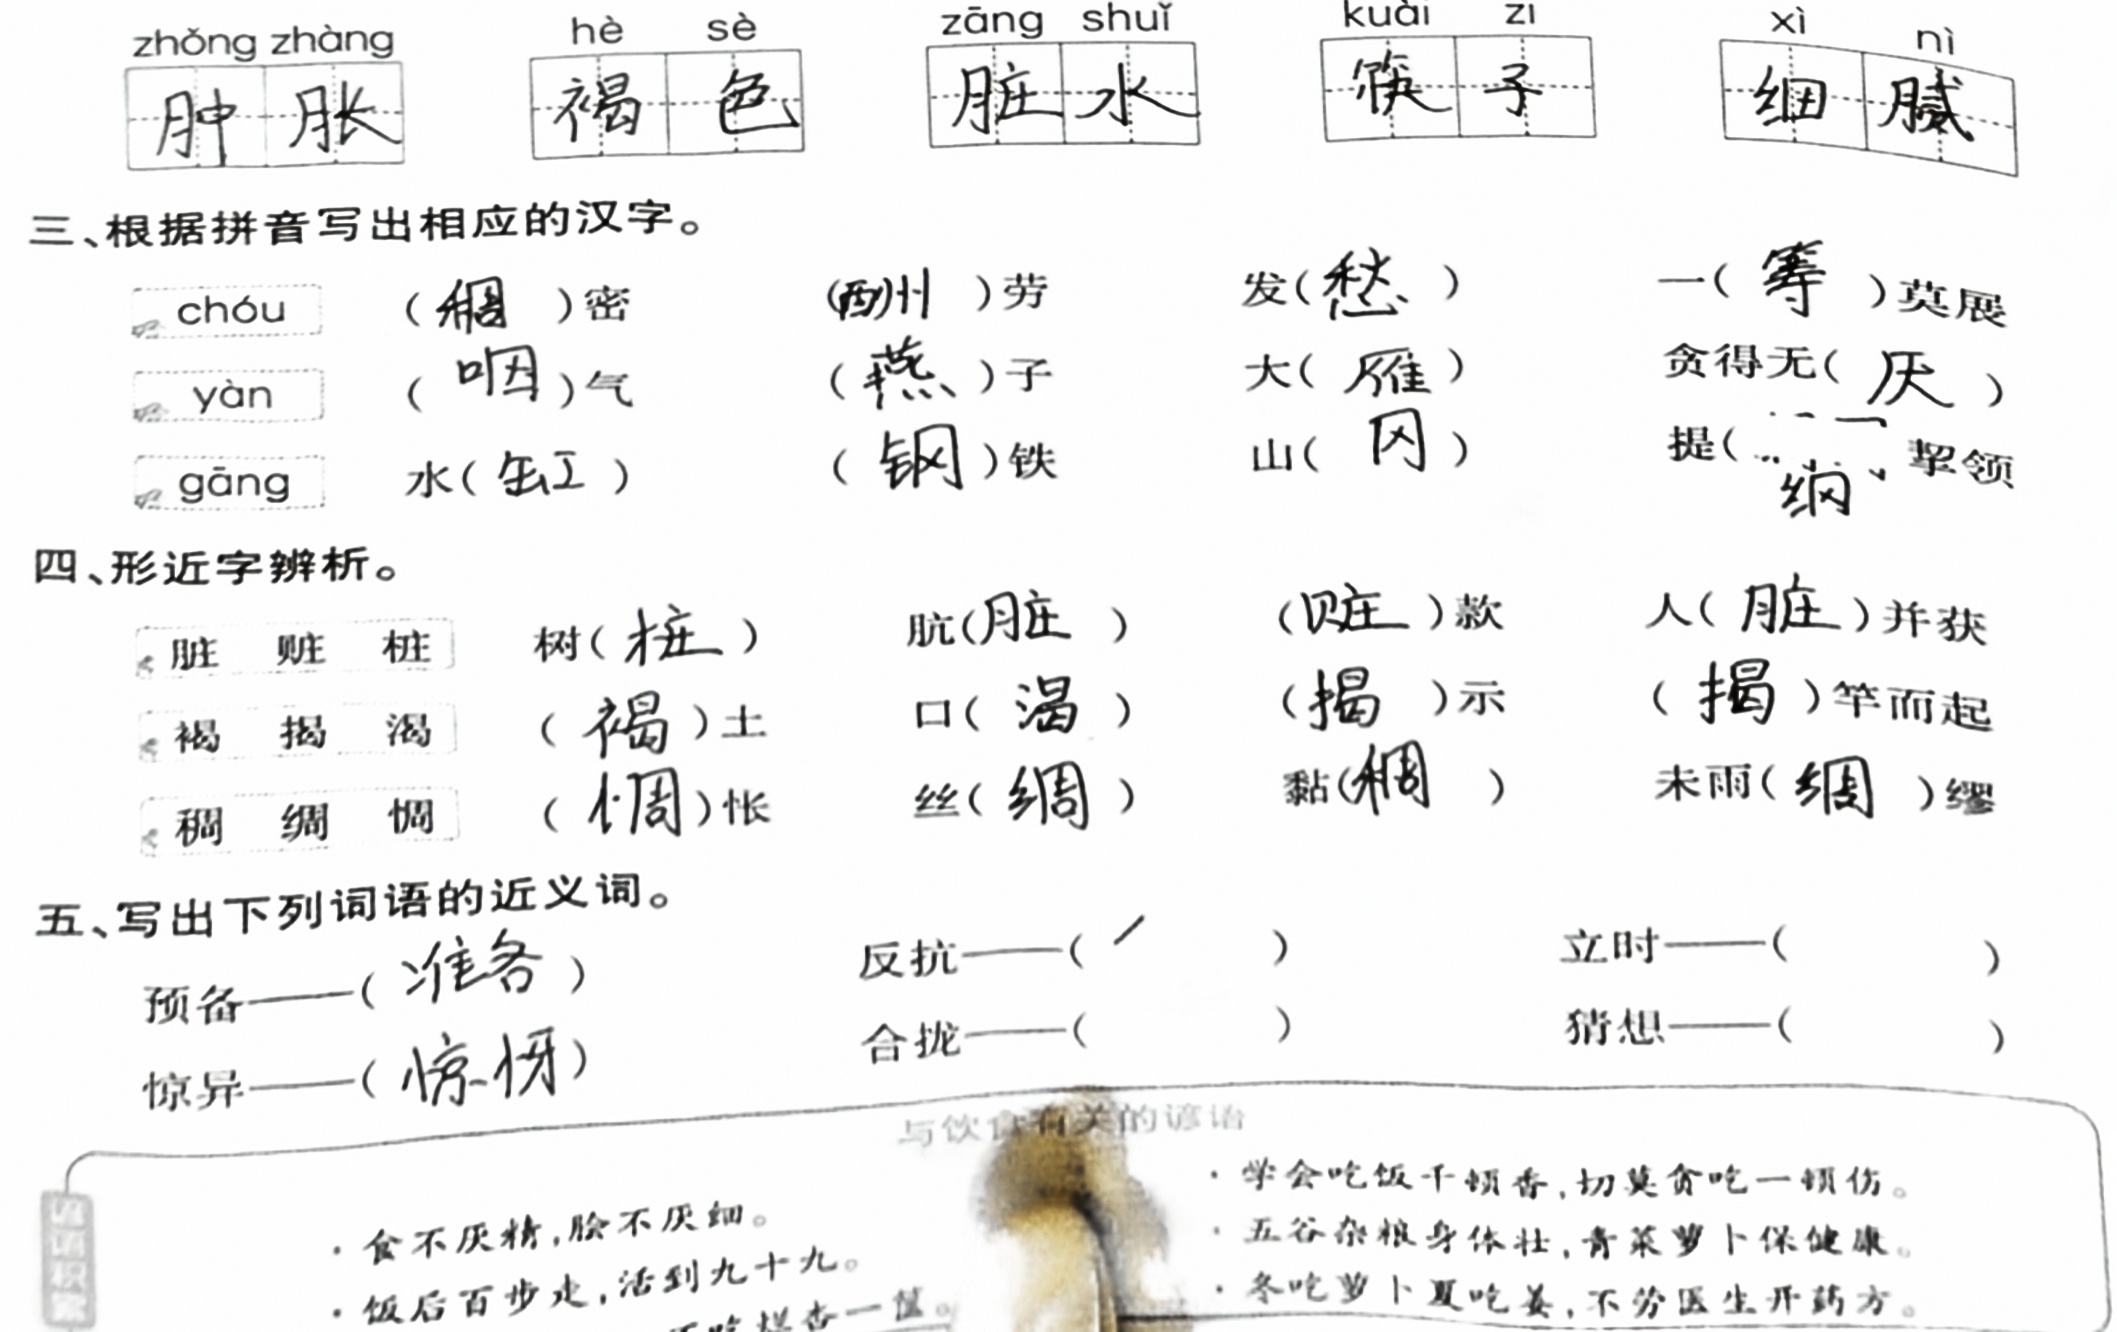 zhǒng zhàng hè sè zāng shuǐ kuài zi xì nì
肿胀 褐色 脏水 筷子 细腻
三、根据拼音写出相应的汉字。
chóu (稠)密 (酬)劳 发(愁) 一(筹)莫展
yàn (咽)气 (燕)子 大(雁) 贪得无(厌)
gāng 水(缸) (钢)铁 山(冈) 提(纲)挈领
四、形近字辨析。
脏 赃 桩 树(桩) 肮(脏) (赃)款 人(脏)并获
褐 揭 渴 (褐)土 口(渴) (揭)示 (揭)竿而起
稠 绸 惆 (惆)怅 丝(绸) 黏(稠) 未雨(绸)缪
五、写出下列词语的近义词。
预备——(准备) 反抗——( ) 立时——( )
惊异——(惊讶) 合拢——( ) 猜想——( )
与饮食有关的谚语
·食不厌精,脍不厌细。
·饭后百步走,活到九十九。
·学会吃饭千顿香,切莫贪吃一顿伤。
·五谷杂粮身体壮,青菜萝卜保健康。
·冬吃萝卜夏吃姜,不劳医生开药方。